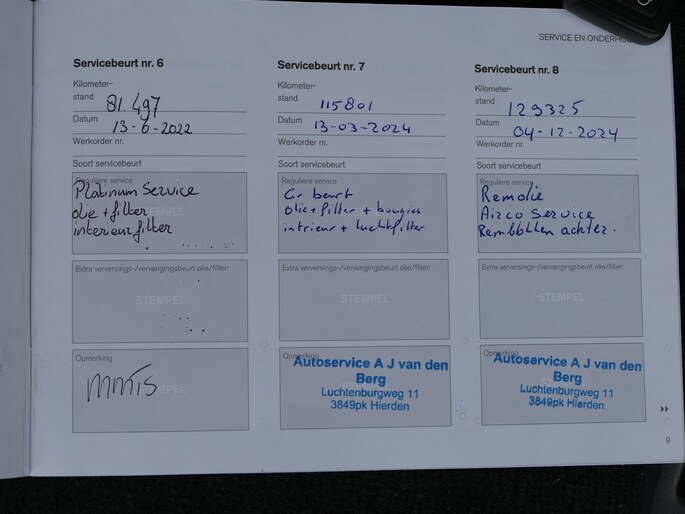 SERVICE EN ONDERHOU
Servicebeurt nr. 6
Kilometer-
stand 81.497
Datum 13-6-2022
Werkorder nr.
Soort servicebeurt
Reguliere service
Platinum Service
olie + filter
interieur filter
STEMPEL
Extra verversings-/vervangingsbeurt olie/filter:
STEMPEL
Opmerking
STEMPEL
Servicebeurt nr. 7
Kilometer-
stand 115801
Datum 13-03-2024
Werkorder nr.
Soort servicebeurt
Reguliere service
Gr beurt
olie + filter + bougies
intrieur + luchtfilter
Extra verversings-/vervangingsbeurt olie/filter:
STEMPEL
Opmerking
Autoservice A J van den
Berg
Luchtenburgweg 11
3849pk Hierden
Servicebeurt nr. 8
Kilometer-
stand 129325
Datum 04-12-2024
Werkorder nr.
Soort servicebeurt
Reguliere service
Remolie
Airco Service
achter.
Extra verversings-/vervangingsbeurt olie/filter:
STEMPEL
Opmerking
Autoservice A J van den
Berg
Luchtenburgweg 11
3849pk Hierden
9